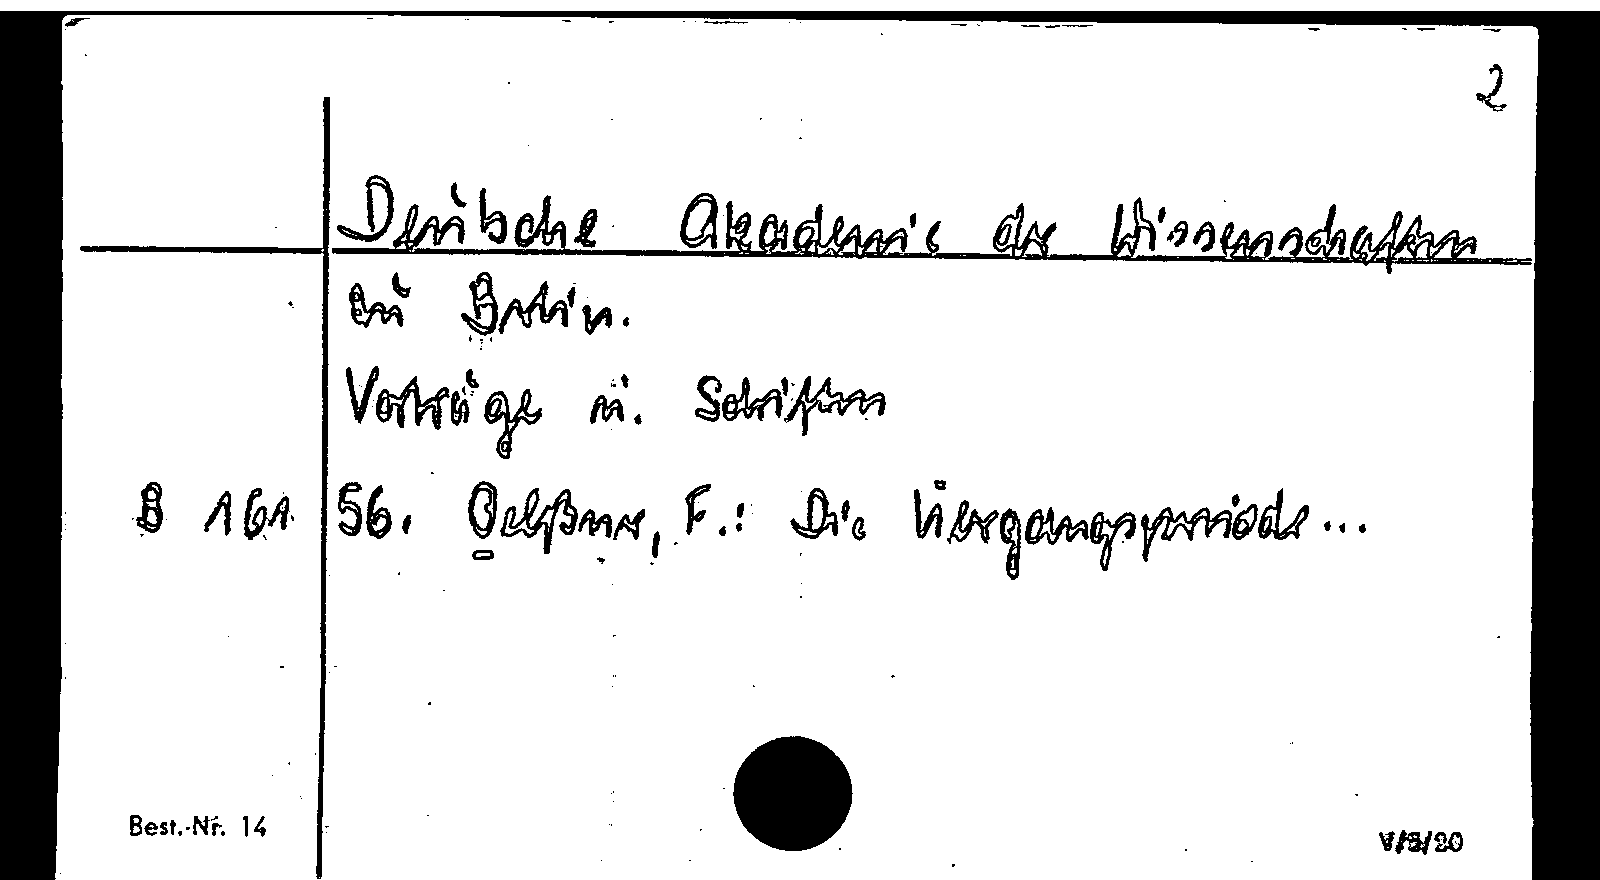 2
Deutsche Akademie der Wissenschaften
zu Berlin.
Vorträge u. Schriften
B 161 56. Oelßner, F.: Die Übergangsperiode...
Best.-Nr. 14
V/5/80